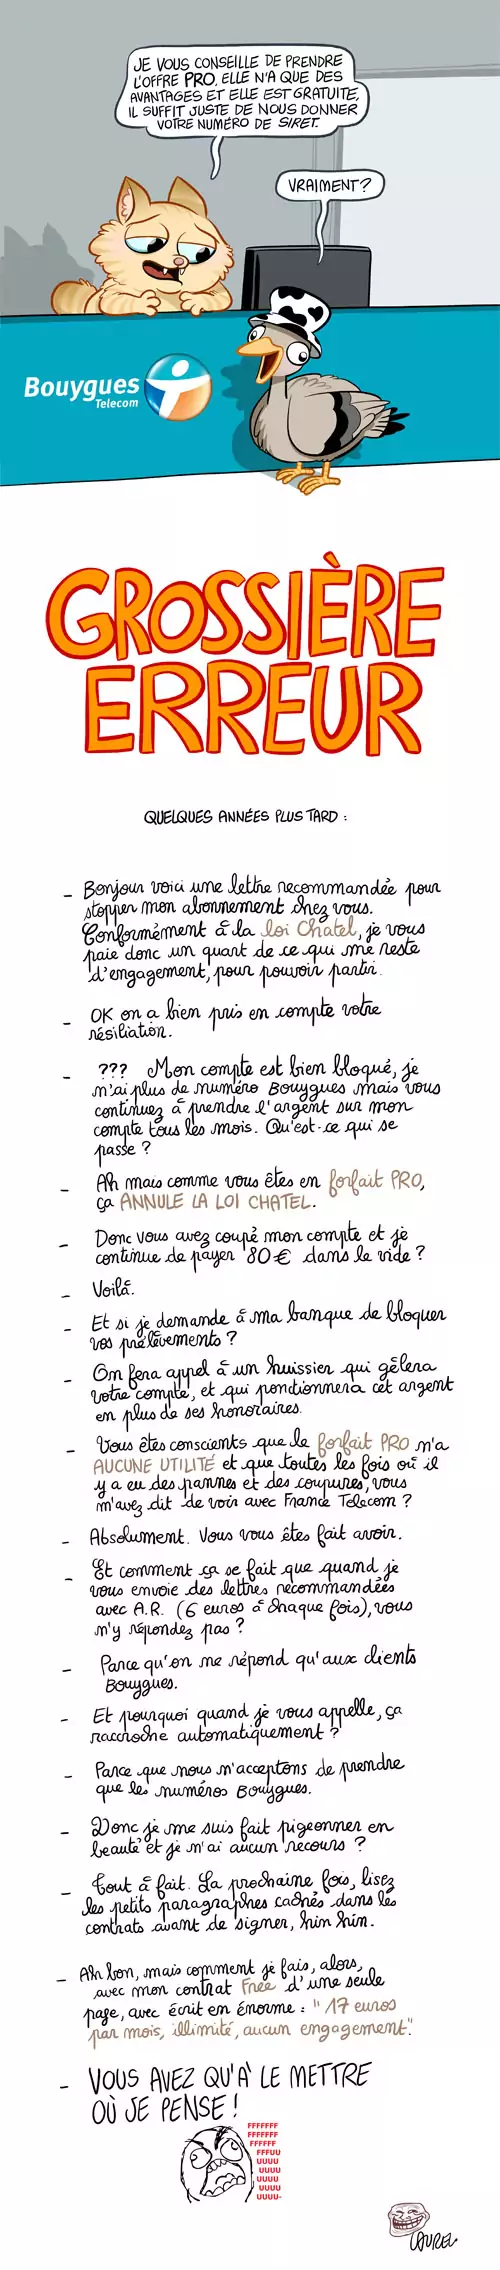 JE VOUS CONSEILLE DE PRENDRE
L'OFFRE PRO. ELLE N'A QUE DES
AVANTAGES ET ELLE EST GRATUITE,
IL SUFFIT JUSTE DE NOUS DONNER
VOTRE NUMÉRO DE SIRET.
VRAIMENT?
Bouygues
Telecom
GROSSIÈRE
ERREUR
QUELQUES ANNÉES PLUS TARD :
- Bonjour voici une lettre recommandée pour
stopper mon abonnement chez vous.
Conformément à la loi Chatel, je vous
paie donc un quart de ce qui me reste
d'engagement, pour pouvoir partir.
- OK on a bien pris en compte votre
résiliation.
- ??? Mon compte est bien bloqué, je
n'ai plus de numéro Bouygues mais vous
continuez à prendre l'argent sur mon
compte tous les mois. Qu'est-ce qui se
passe ?
- Ah mais comme vous êtes en forfait PRO,
ça ANNULE LA LOI CHATEL.
- Donc vous avez coupé mon compte et je
continue de payer 80€ dans le vide ?
- Voilà.
- Et si je demande à ma banque de bloquer
vos prélèvements ?
- On fera appel à un huissier qui gèlera
votre compte, et qui ponctionnera cet argent
en plus de ses honoraires.
- Vous êtes conscients que le forfait PRO n'a
AUCUNE UTILITÉ et que toutes les fois où il
y a eu des pannes et des coupures, vous
m'avez dit de voir avec France Telecom ?
- Absolument. Vous vous êtes fait avoir.
- Et comment ça se fait que quand je
vous envoie des lettres recommandées
avec A.R. (6 euros à chaque fois), vous
n'y répondez pas ?
- Parce qu'on ne répond qu'aux clients
Bouygues.
- Et pourquoi quand je vous appelle, ça
raccroche automatiquement ?
- Parce que nous n'acceptons de prendre
que les numéros Bouygues.
- Donc je me suis fait pigeonner en
beauté et je n'ai aucun recours ?
- Tout à fait. La prochaine fois, lisez
les petits paragraphes cachés dans les
contrats avant de signer, hin hin.
- Ah bon, mais comment je fais, alors,
avec mon contrat Free d'une seule
page, avec écrit en énorme : "17 euros
par mois, illimité, aucun engagement".
- VOUS AVEZ QU'À LE METTRE
OÙ JE PENSE !
FFFFFFF
FFFFFFF
FFFFFF
FFFUU
UUUU
UUUU
UUUU
UUUU
UUUU-
LAUREL